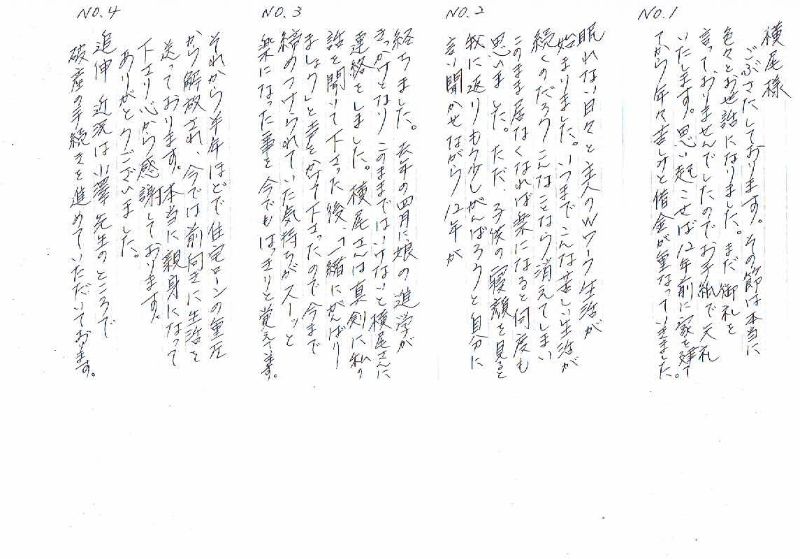 NO.1
横尾様
ごぶさたしております。その節は本当に
色々とお世話になりました。まだ御礼を
言っておりませんでしたのでお手紙で失礼
いたします。思い起こせば12年前に家を建て
てから年々苦しみと借金が重なっていきました。
NO.2
眠れない日々と主人のWワーク生活が
始まりました。いつまでこんな苦しい生活が
続くのだろう、こんなことなら消えてしまい
このまま居なくなれば楽になると何度も
思いました。ただ、子供の寝顔を見ると
我に返りもう少しがんばろうと自分に
言い聞かせながら12年が
NO.3
経ちました。去年の四月に娘の進学が
きっかけとなり、このままではいけないと横尾さんに
連絡をしました。横尾さんは真剣に私の
話を聞いて下さった後、「一緒にがんばり
ましょう」と声をかけて下さったので今まで
締めつけられていた気持ちがスーッと
楽になった事を今でもはっきりと覚えてます。
NO.4
それから半年ほどで住宅ローンの重圧
から解放され、今では前向きに生活を
送っております。本当に親身になって
下さり心から感謝しております。
ありがとうございました。
追伸 近況は小澤先生のところで
破産の手続きを進めていただいております。